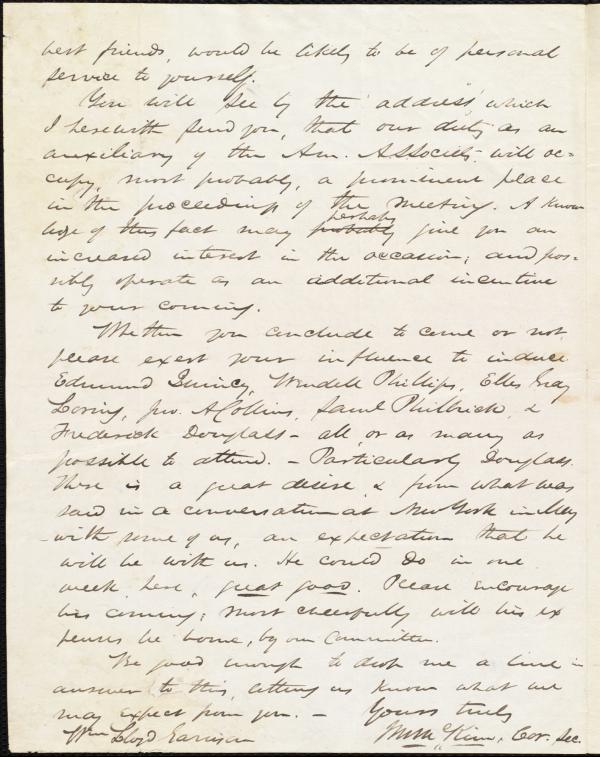 best friends, would be likely to be of personal
service to yourself.
You will see by the "address", which
I herewith send you, that our duty as an
auxiliary of the Am. A.S. Society will oc=
cupy, most probably, a prominent place
in the proceedings of the meeting. A know
ledge of this fact may perhaps probably give you an
increased interest in the occasion; and pos=
sibly operate as an additional incentive
to your coming.
Whether you conclude to come or not,
please exert your influence to induce
Edmund Quincy, Wendell Phillips, Ellis Gray
Loring, Jno. A Collins, Saml Philbrick, &
Frederick Douglass - all, or as many as
possible to attend. - Particularly Douglass.
There is a great desire, & from what was
said in a conversation at New York in May
with some of us, an expectation that he
will be with us. He could do in one
week here, great good. Please encourage
his coming; most cheerfully will his ex
penses be borne, by our Committee.
Be good enough to drop me a line in
answer to this, letting us know what we
may expect from you. - Yours truly
Wm Lloyd Garrison J M McKim, Cor. Sec.